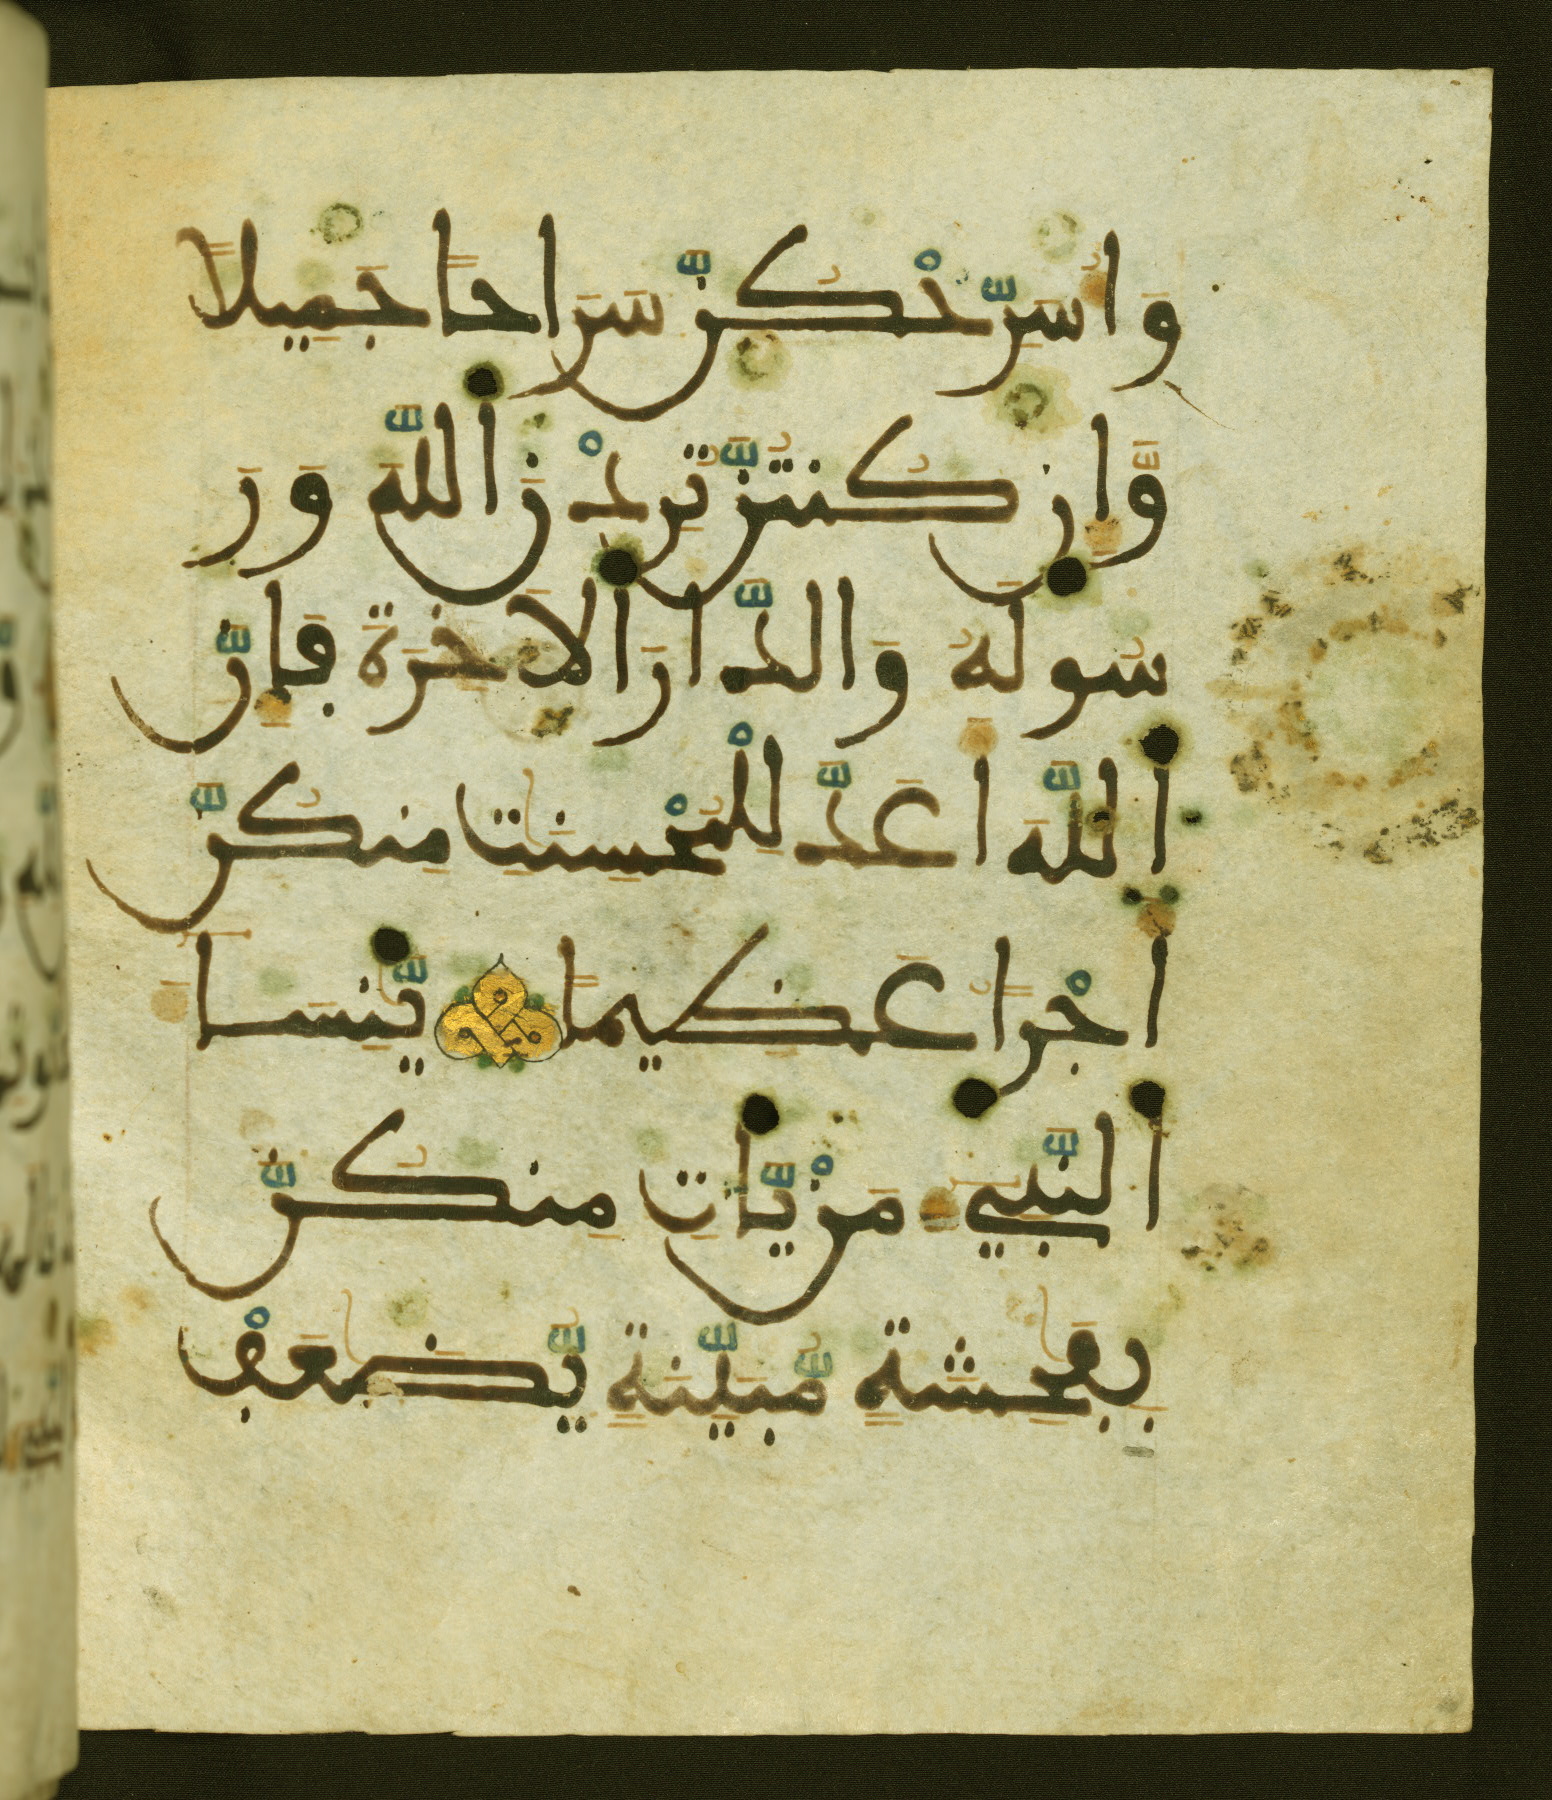 وَأُسَرِّحْكُنَّ سَرَاحًا جَمِيلًا
وَّإِن كُنتُنَّ تُرِدْنَ اَللَّهَ وَرَ
سُولَهُ وَالدَّارَ اَلَاخِرَةَ فَإِنَّ
اَللَّهَ أَعَدَّ لِلْمُحْسِنَٰتِ مِنكُنَّ
أَجْرًا عَظِيمًا يَّنِسَآءَ
اَلنَّبِيٓءِ مَنْ يَّاتِ مِنكُنَّ
بِفَٰحِشَةٍ مُّبَيِّنَةٍ يُّضَٰعَفْ